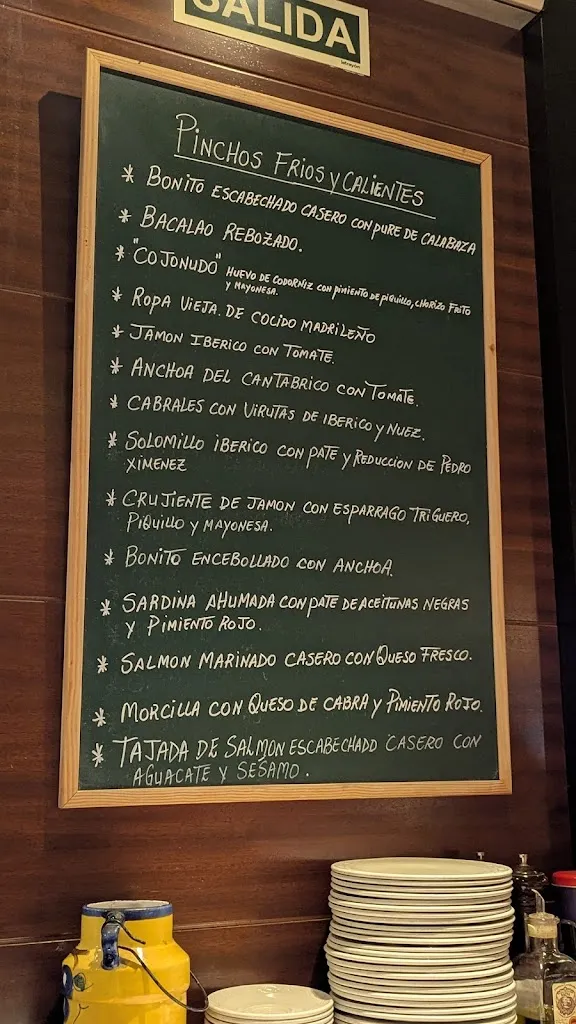 SALIDA
PINCHOS FRIOS Y CALIENTES
* BONITO ESCABECHADO CASERO CON PURE DE CALABAZA
* BACALAO REBOZADO.
* "COJONUDO" HUEVO DE CODORNIZ CON PIMIENTO DE PIQUILLO, CHORIZO FRITO
Y MAYONESA.
* ROPA VIEJA. DE COCIDO MADRILEÑO
* JAMON IBERICO CON TOMATE.
* ANCHOA DEL CANTABRICO CON TOMATE.
* CABRALES CON VIRUTAS DE IBERICO Y NUEZ.
* SOLOMILLO IBERICO CON PATE Y REDUCCION DE PEDRO
XIMENEZ
* CRUJIENTE DE JAMON CON ESPARRAGO TRIGUERO,
PIQUILLO Y MAYONESA.
* BONITO ENCEBOLLADO CON ANCHOA.
* SARDINA AHUMADA CON PATE DE ACEITUNAS NEGRAS
Y PIMIENTO ROJO.
* SALMON MARINADO CASERO CON QUESO FRESCO.
* MORCILLA CON QUESO DE CABRA Y PIMIENTO ROJO.
* TAJADA DE SALMON ESCABECHADO CASERO CON
AGUACATE Y SESAMO.